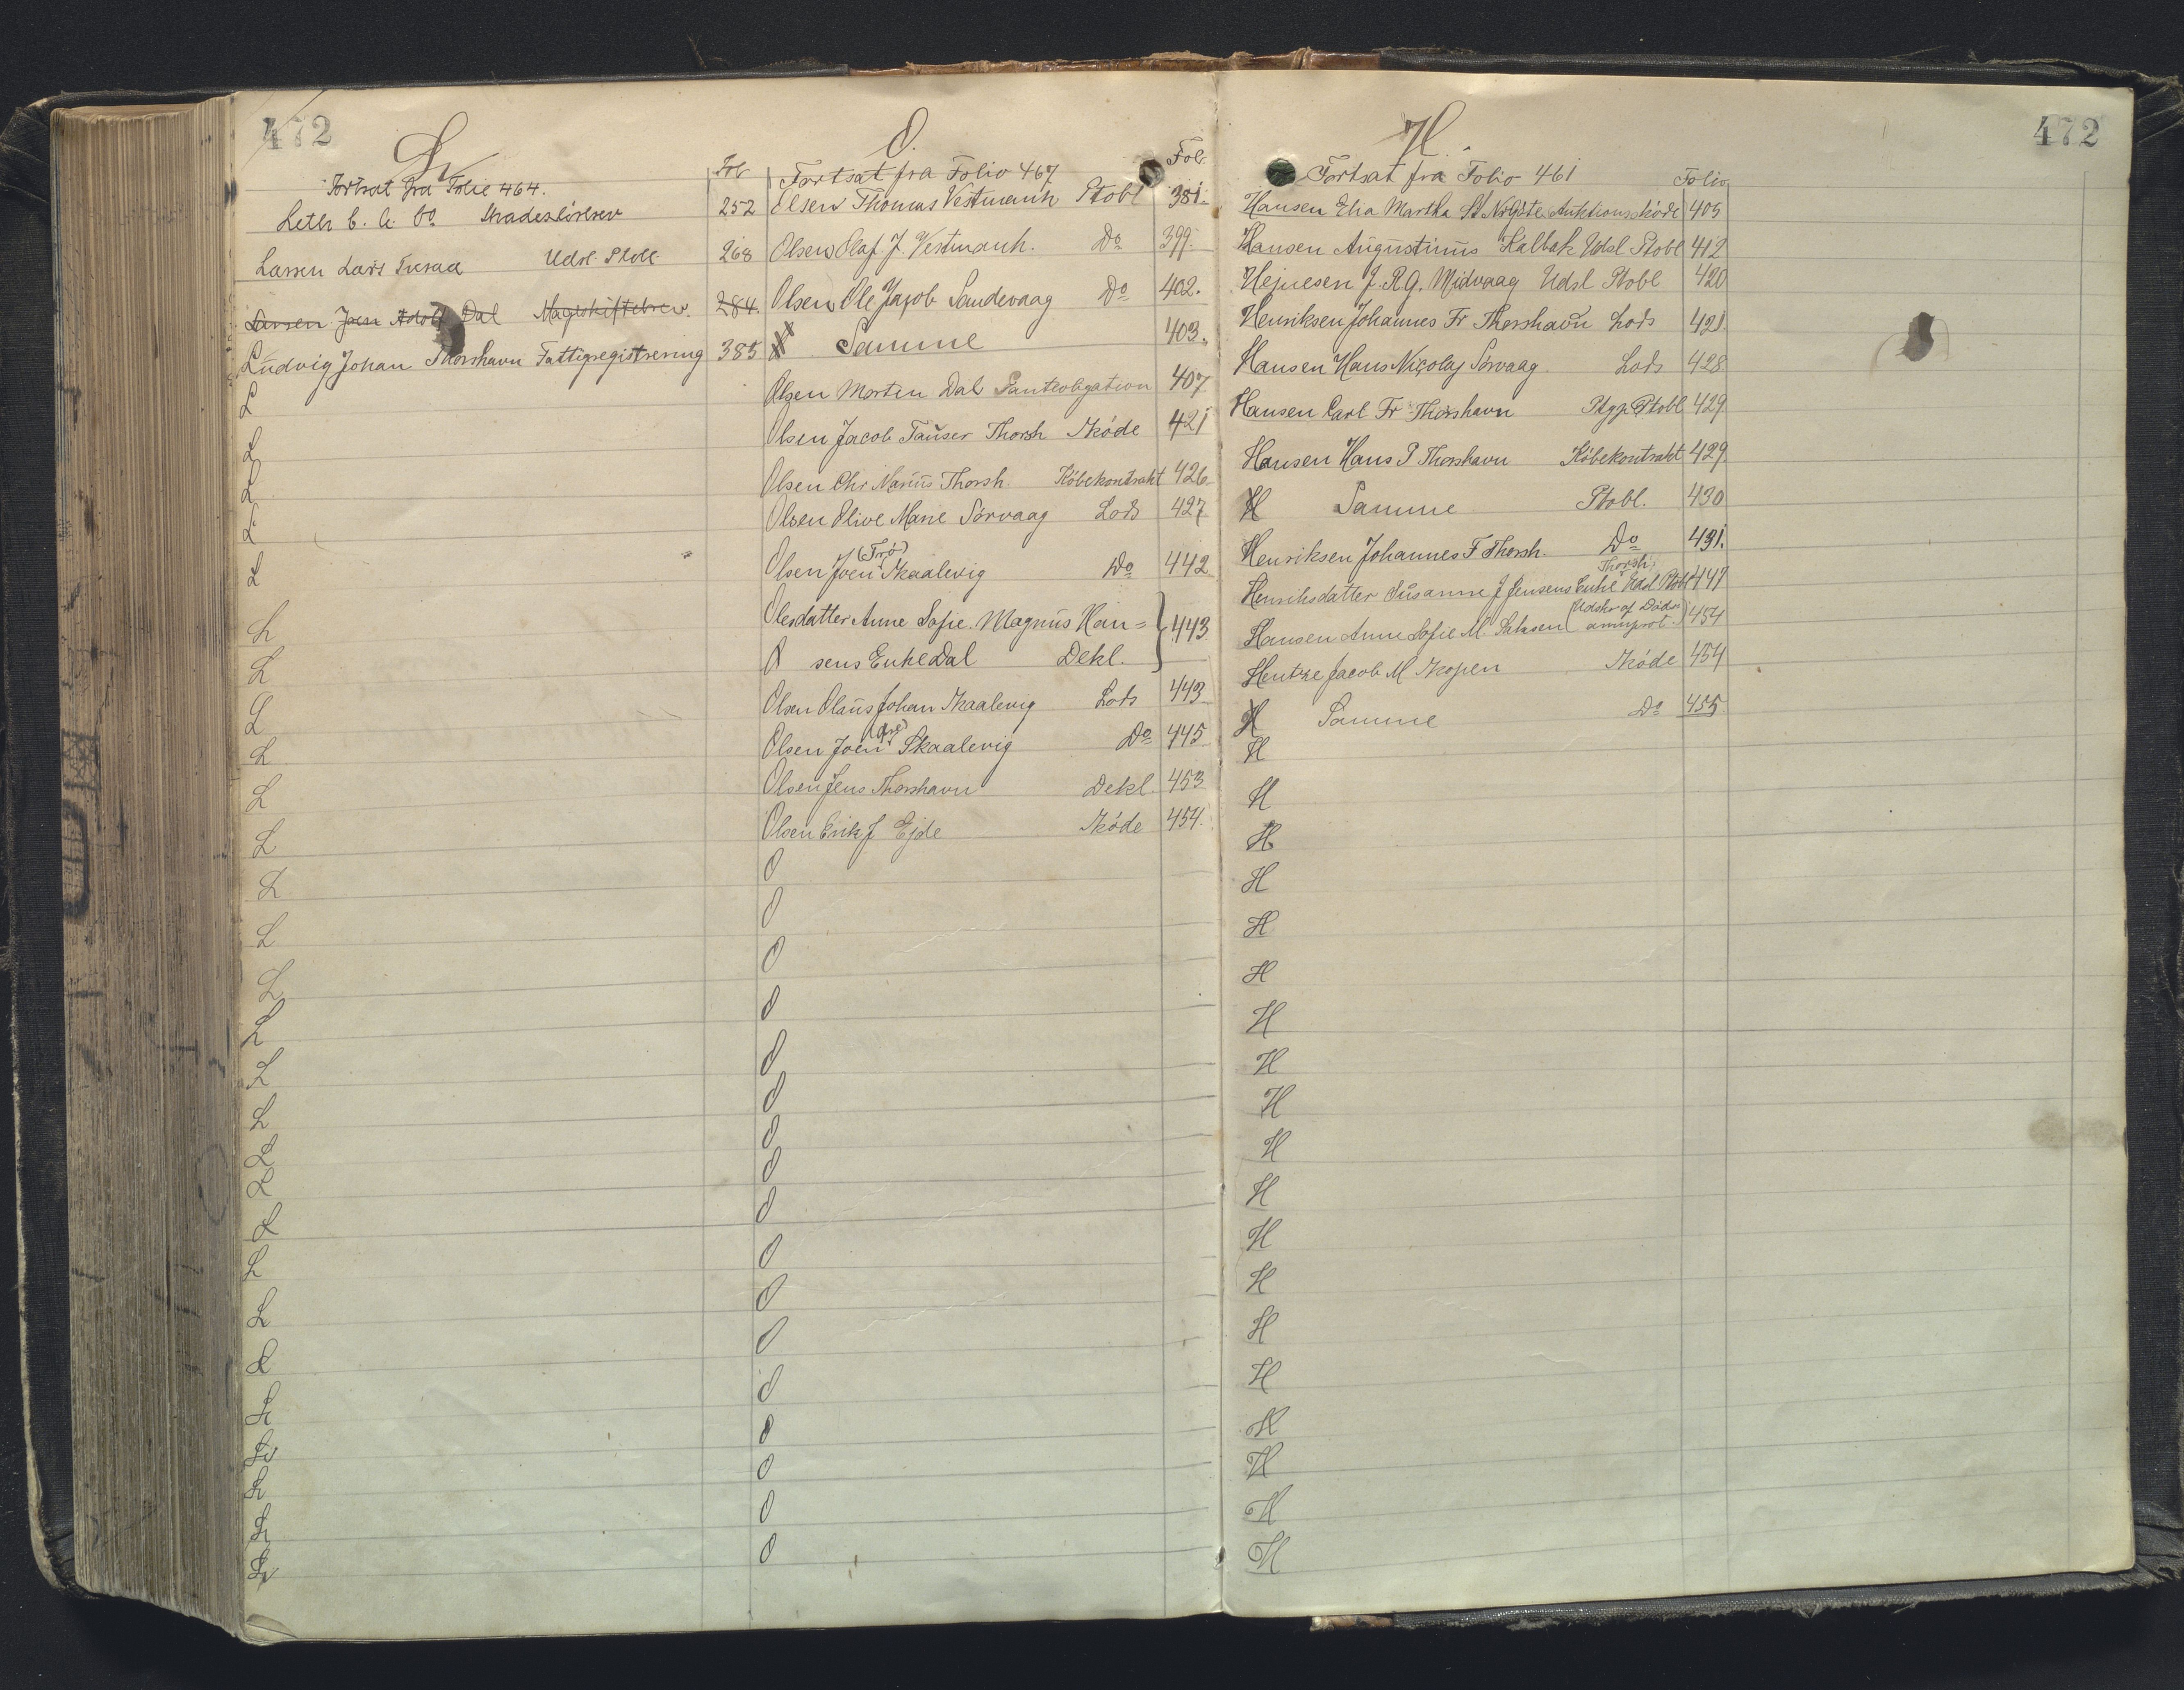 472
L
Fortsat fra Folie 464. Fol
Leth C. C. Co Skadesløsbrev 252
Larsen Lars Tveraa Udsl Ptobl 268
Joen Adolf Dal Mageskiftebrev. 284.
Ludvig Johan Thorshavn Fattigregistrering 385
L
L
L
L
L
L
L
L
L
L
L
L
L
L
L
L
L
L
L
L
L
L
L
L
L
L
L
L
O.
Fortsat fra Folio 467 Fol.
Olsen Thomas Vestmanh Ptobl 381.
Olsen Olaf J. Vestmanh. Do 399.
Olsen Ole Jacob Sandevaag Do 402.
Samme 403.
Olsen Morten Dal Panteobligation 407
Olsen Jacob Tauser Thorsh Skøde 421
Olsen Chr Marius Thorsh. Købekontrakt 426
Olsen Olive Marie Sørvaag Lods 427
Olsen Joen (Trø) Skaalevig Do 442
Olesdatter Anne Sofie. Magnus Han= } 443
O sens Enke Dal Dekl.
Olsen Olaus Johan Skaalevig Lods 443
Olsen Joen Skaalevig Do 445
Olsen Jens Thorshavn Dekl. 453
Olsen Erik J Ejde Skøde 454.
O
O
O
O
O
O
O
O
O
O
O
O
O
O
O
O
O
472
H.
Fortsat fra Folio 461 Folio
Hansen Elia Martha St Nr Gøte Auktionsskøde 405
Hansen Augustinus Kalbak Udsl Ptobl 412
Hejnesen J. R. G. Midvaag Udsl Ptobl 420
Henriksen Johannes Fr Thorshavn Lods 421
Hansen Hans Nicolaj Sørvaag Lods 428
Hansen Carl Fr Thorshavn Ptgp Ptobl 429
Hansen Hans P Thorshavn Købekontrakt 429
H Samme Ptobl. 430
Henriksen Johannes F Thorsh. Do 431.
Henriksdatter Susanne J Jensens Enke Thorsh. Udsl Ptobl 447
Hansen Anne Sofie M. (Udskr af Døds 454
Hentze Jacob M Skopen Skøde 454
H Samme Do 455
H
H
H
H
H
H
H
H
H
H
H
H
H
H
H
H
H
H
H